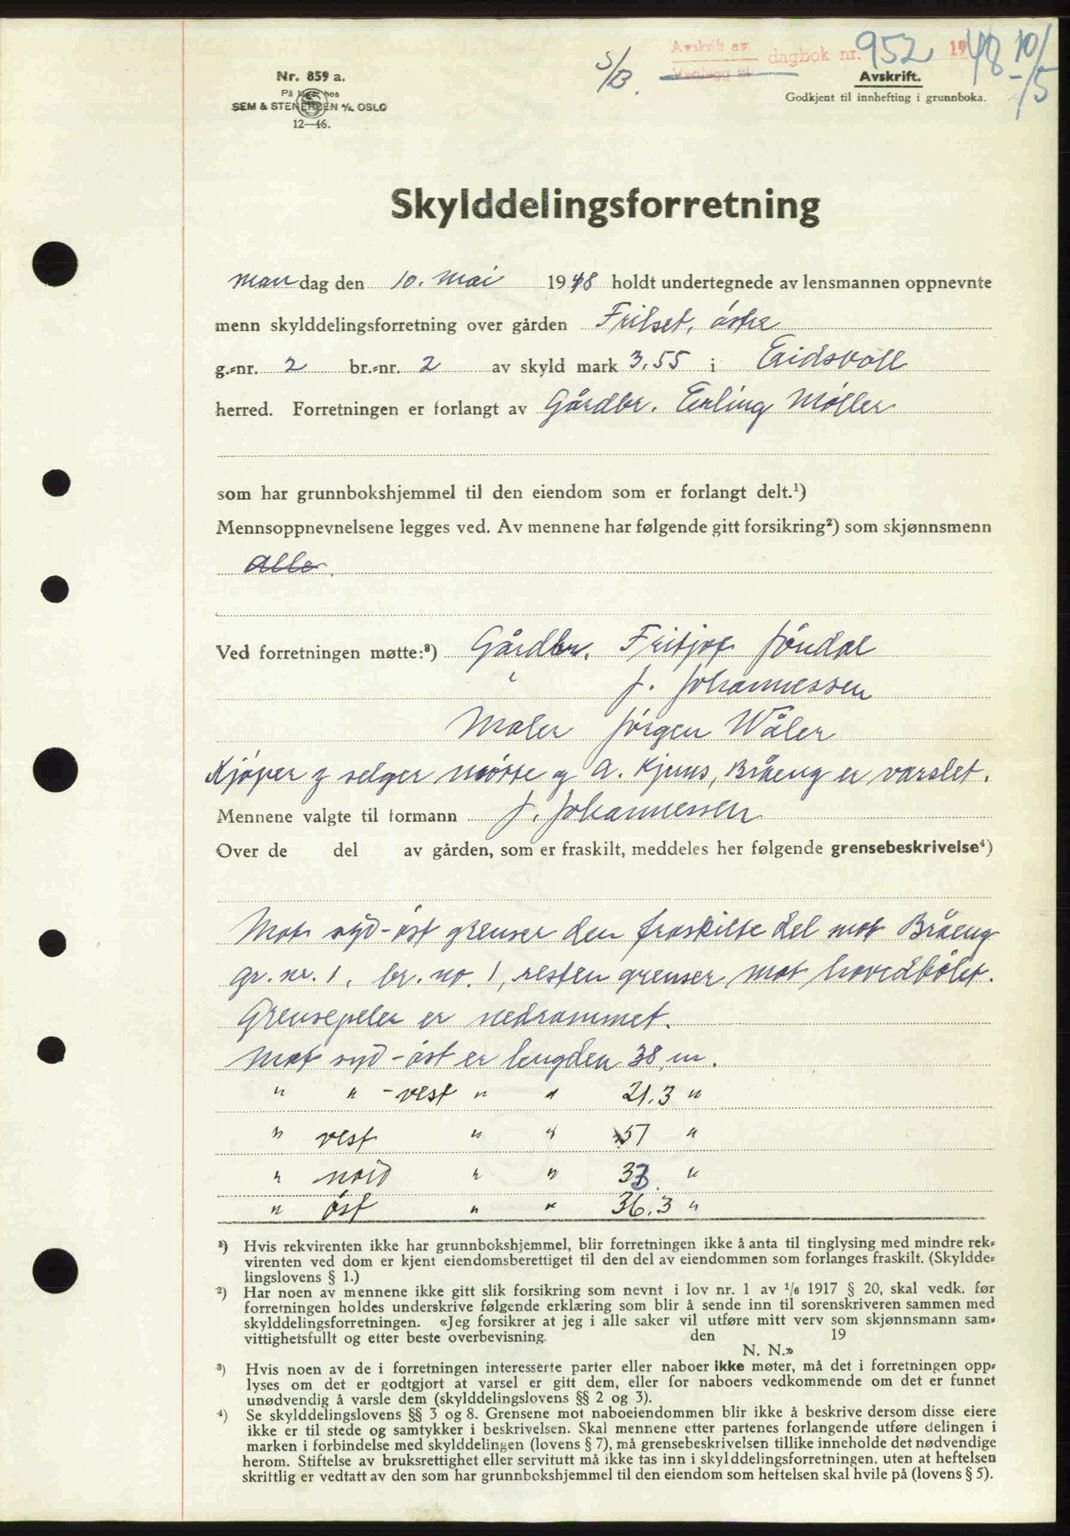 Avskrift av
Vedlegg til
dagbok nr. 952 1948 10/5
S/B.
Nr. 859 a.
På lager hos
SEM & STENERSEN A/S, OSLO
12—46.
Avskrift.
Godkjent til innhefting i grunnboka.
Skylddelingsforretning
Man dag den 10. Mai 1948 holdt undertegnede av lensmannen oppnevnte
menn skylddelingsforretning over gården Frilset, østre
g.-nr. 2 br.-nr. 2 av skyld mark 3,55 i Eidsvoll
herred. Forretningen er forlangt av Gårdbr. Erling Møller
som har grunnbokshjemmel til den eiendom som er forlangt delt.¹)
Mennsoppnevnelsene legges ved. Av mennene har følgende gitt forsikring²) som skjønnsmenn
Alle.
Ved forretningen møtte:³) Gårdbr. Fritjof Jøndal
" J. Johannessen
Maler Jørgen Wåler
Kjøper og selger møtte og A. Kjuus, Bråeng er varslet.
Mennene valgte til formann J. Johannessen
Over de del av gården, som er fraskilt, meddeles her følgende grensebeskrivelse⁴)
Mot syd-øst grenser den fraskilte del mot Bråeng
gr. nr. 1, br. no. 1, resten grenser mot hovedbølet.
Grensepeler er nedrammet.
Mot syd-øst er lengden 38 m.
" " -vest " " 21.3 "
" vest " " 57 "
" nord " " 33 "
" øst " " 36.3 "
¹) Hvis rekvirenten ikke har grunnbokshjemmel, blir forretningen ikke å anta til tinglysing med mindre rek-
virenten ved dom er kjent eiendomsberettiget til den del av eiendommen som forlanges fraskilt. (Skyldde-
lingslovens § 1.)
²) Har noen av mennene ikke gitt slik forsikring som nevnt i lov nr. 1 av 1/6 1917 § 20, skal vedk. før
forretningen holdes underskrive følgende erklæring som blir å sende inn til sorenskriveren sammen med
skylddelingsforretningen. «Jeg forsikrer at jeg i alle saker vil utføre mitt verv som skjønnsmann sam-
vittighetsfullt og etter beste overbevisning. den 19
N. N.»
³) Hvis noen av de i forretningen interesserte parter eller naboer ikke møter, må det i forretningen opp-
lyses om det er godtgjort at varsel er gitt dem, eller for naboers vedkommende om det er funnet
unødvendig å varsle dem (skylddelingslovens §§ 2 og 3).
⁴) Se skylddelingslovens §§ 3 og 8. Grensene mot naboeiendommen blir ikke å beskrive dersom disse eiere
ikke er til stede og samtykker i beskrivelsen. Skal mennene etter partenes forlangende utføre delingen i
marken i forbindelse med skylddelingen (lovens § 7), må grensebeskrivelsen tillike inneholde det nødvendige
herom. Stiftelse av bruksrettighet eller servitutt må ikke tas inn i skylddelingsforretningen, uten at heftelsen
skrittlig er vedtatt av den som har grunnbokshjemmel til den eiendom som heftelsen skal hvile på (lovens § 5).